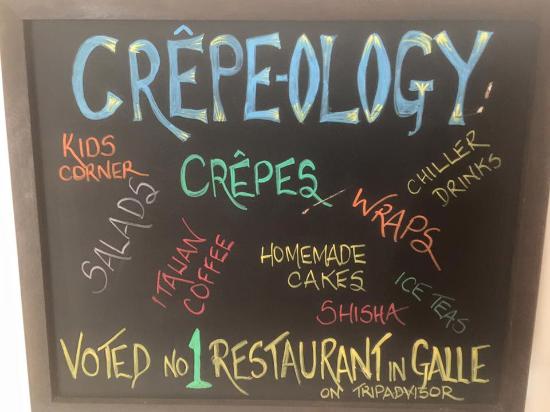 CRÊPE-OLOGY
KIDS
CORNER
CRÊPES
CHILLER
DRINKS
SALADS
WRAPS
ITALIAN
COFFEE
HOMEMADE
CAKES
ICE TEAS
SHISHA
VOTED NO 1 RESTAURANT IN GALLE
ON TRIPADVISOR